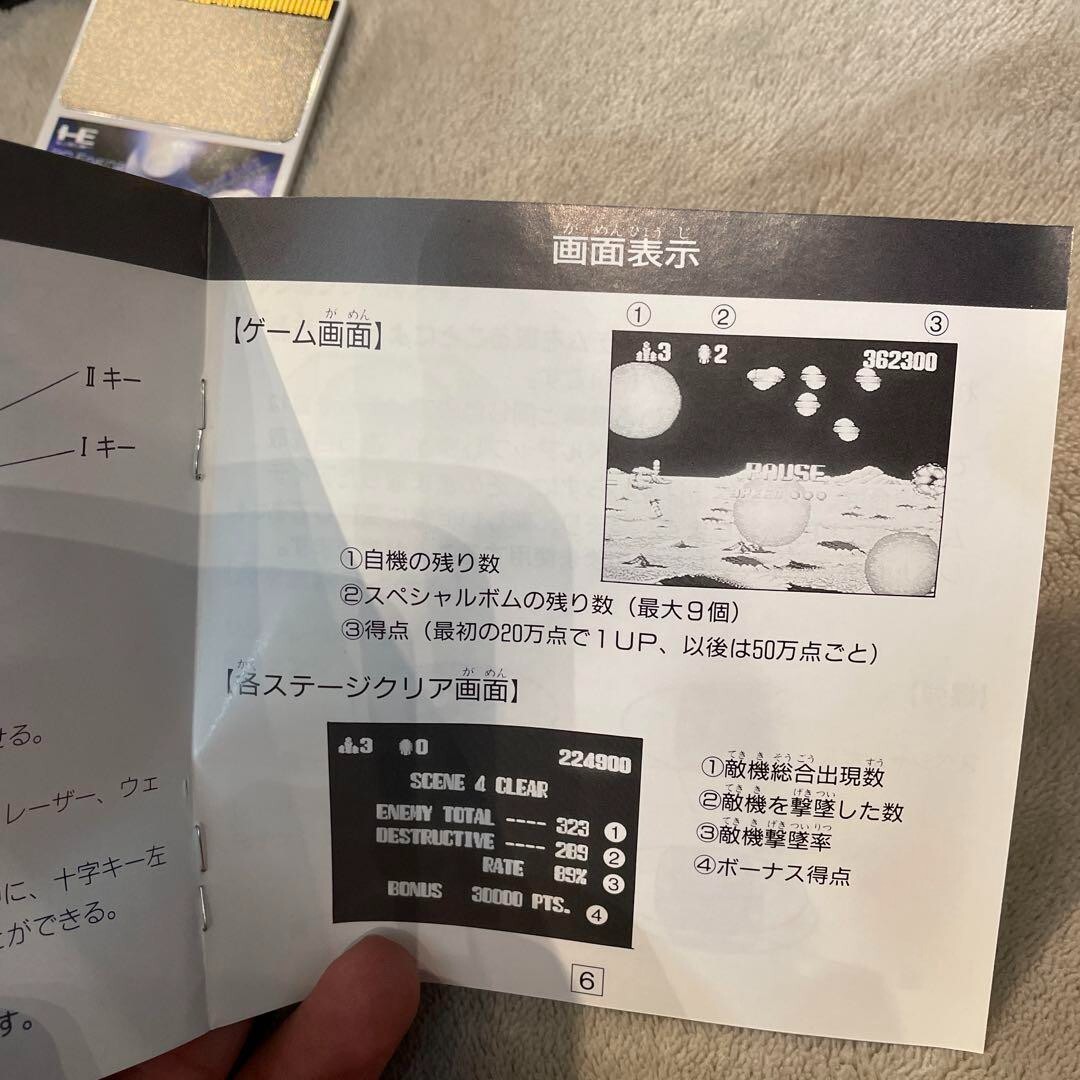 HE
IIキー
Iキー
せる。
レーザー、ウェ
に、十字キー左
とができる。
す。
画面表示
がめんひょうじ
【ゲーム画面】
がめん
① ② ③
3 2 362300
PAUSE
SPEED
①自機の残り数
②スペシャルボムの残り数（最大9個）
③得点（最初の20万点で1UP、以後は50万点ごと）
【各ステージクリア画面】
かく がめん
3 0 224900
SCENE 4 CLEAR
ENEMY TOTAL ---- 323 ①
DESTRUCTIVE ---- 289 ②
RATE 89% ③
BONUS 30000 PTS. ④
①敵機総合出現数
てききそうごう すう
②敵機を撃墜した数
てきき げきつい
③敵機撃墜率
てききげきついりつ
④ボーナス得点
6